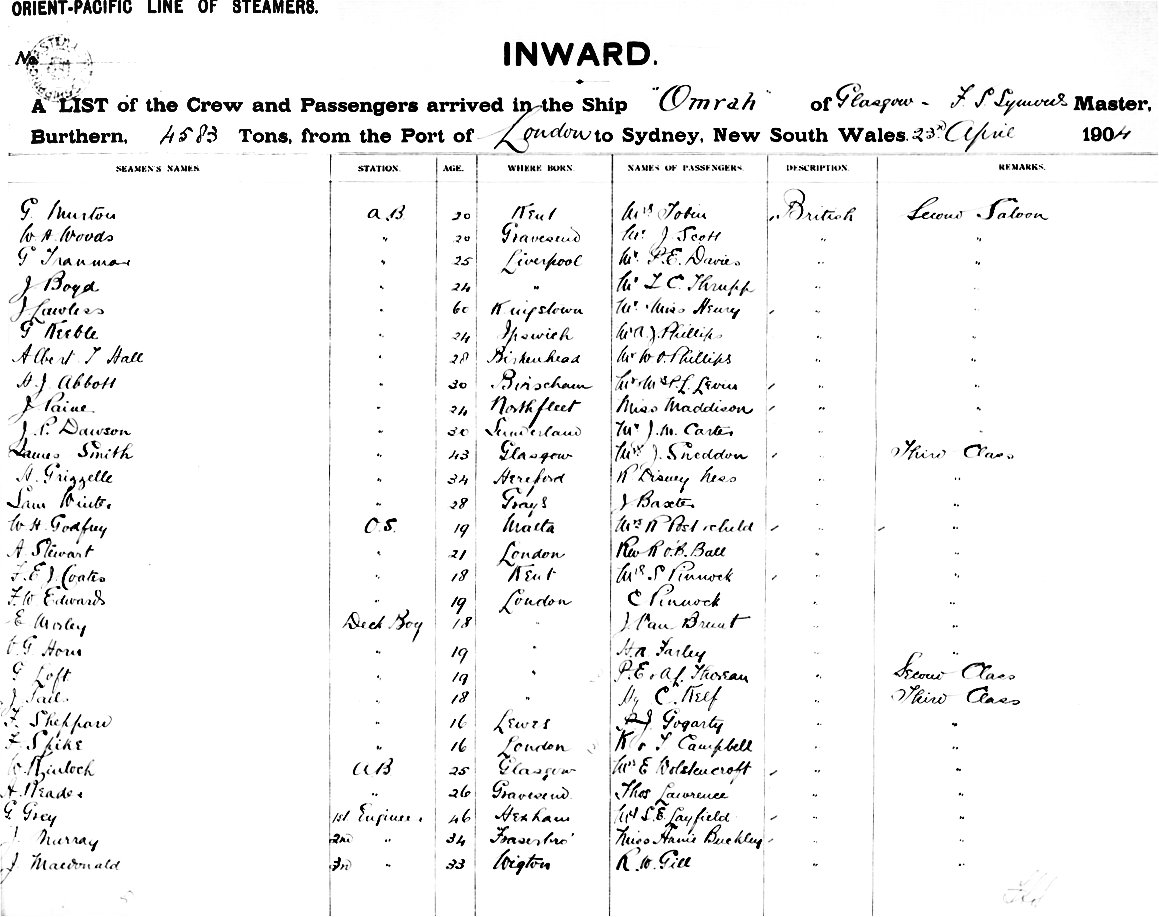 ORIENT-PACIFIC LINE OF STEAMERS.
No.
INWARD.
A LIST of the Crew and Passengers arrived in the Ship "Omrah" of Glasgow - F S Symons Master,
Burthern, 4583 Tons, from the Port of London to Sydney, New South Wales. 23rd April 1904
SEAMEN'S NAMES. STATION. AGE. WHERE BORN. NAMES OF PASSENGERS. DESCRIPTION. REMARKS.
G. Murton A.B 20 Kent Mrs Tobin British Second Saloon
W A Woods " 20 Gravesend Mr J. Scott " "
G " 25 Liverpool Mr P.E. Davies " "
J Boyd " 24 " Mr L C. Thrupp " "
J Lawless " 60 Kingstown Mr Miss Henry " "
G Keeble " 24 Ipswich Mr A J Phillips " "
Albert T Hall " 28 Birkenhead Mr W O. Phillips " "
A. J Abbott " 30 Mr Mrs P.L. " "
J Paine " 24 Northfleet Miss Maddison " "
J. S. Dawson " 30 Sunderland Mr J.M. Carter " "
James Smith " 43 Glasgow Mrs J. Sneddon " Third Class
A. Grizzelle " 34 Hereford R Disney Ness " "
Sam Winter " 28 Grays J Baxter " "
W H Godfrey O.S. 19 Malta Mrs R " "
A Stewart " 21 London Rev R O'B. Ball " "
F.E.J. Coates " 18 Kent Mrs S Pinnock " "
F. W Edwards " 19 London C Pinnock " "
E Mosley Deck Boy 18 " J. Van Brunt " "
G Horn " 19 " H. A Farley " "
G Loft " 19 " P.E. A f. Thoreau " Second Class
J " 18 " Hy C. Kelf " Third Class
F. Sheppard " 16 Lewes J Gogarty " "
F Spike " 16 London K T Campbell " "
W Kinloch AB 25 Glasgow Mrs E Wolstencroft " "
A Reader " 26 Gravesend Thos Lawrence " "
G. Grey 1st Engineer 46 Hexham S.E. Layfield " "
J Murray 2nd " 34 Fraserbro' Miss Buckley " "
J Macdonald 3rd " 33 Wigton R. W. Gill " "